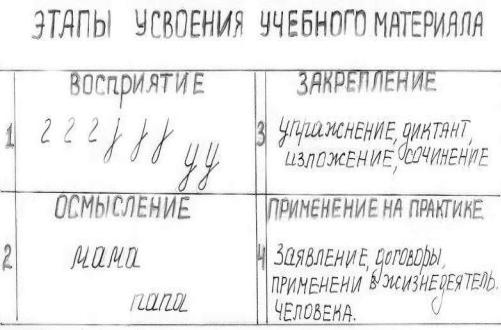 ЭТАПЫ УСВОЕНИЯ УЧЕБНОГО МАТЕРИАЛА
ВОСПРИЯТИЕ
1
г г г
у у
ОСМЫСЛЕНИЕ
2
мама
папа
ЗАКРЕПЛЕНИЕ
3
Упражнение, диктант,
изложение, сочинение
ПРИМЕНЕНИЕ НА ПРАКТИКЕ
4
Заявление, договоры,
ПРИМЕНЕНИ В ЖИЗНЕДЕЯТЕЛЬ.
ЧЕЛОВЕКА.